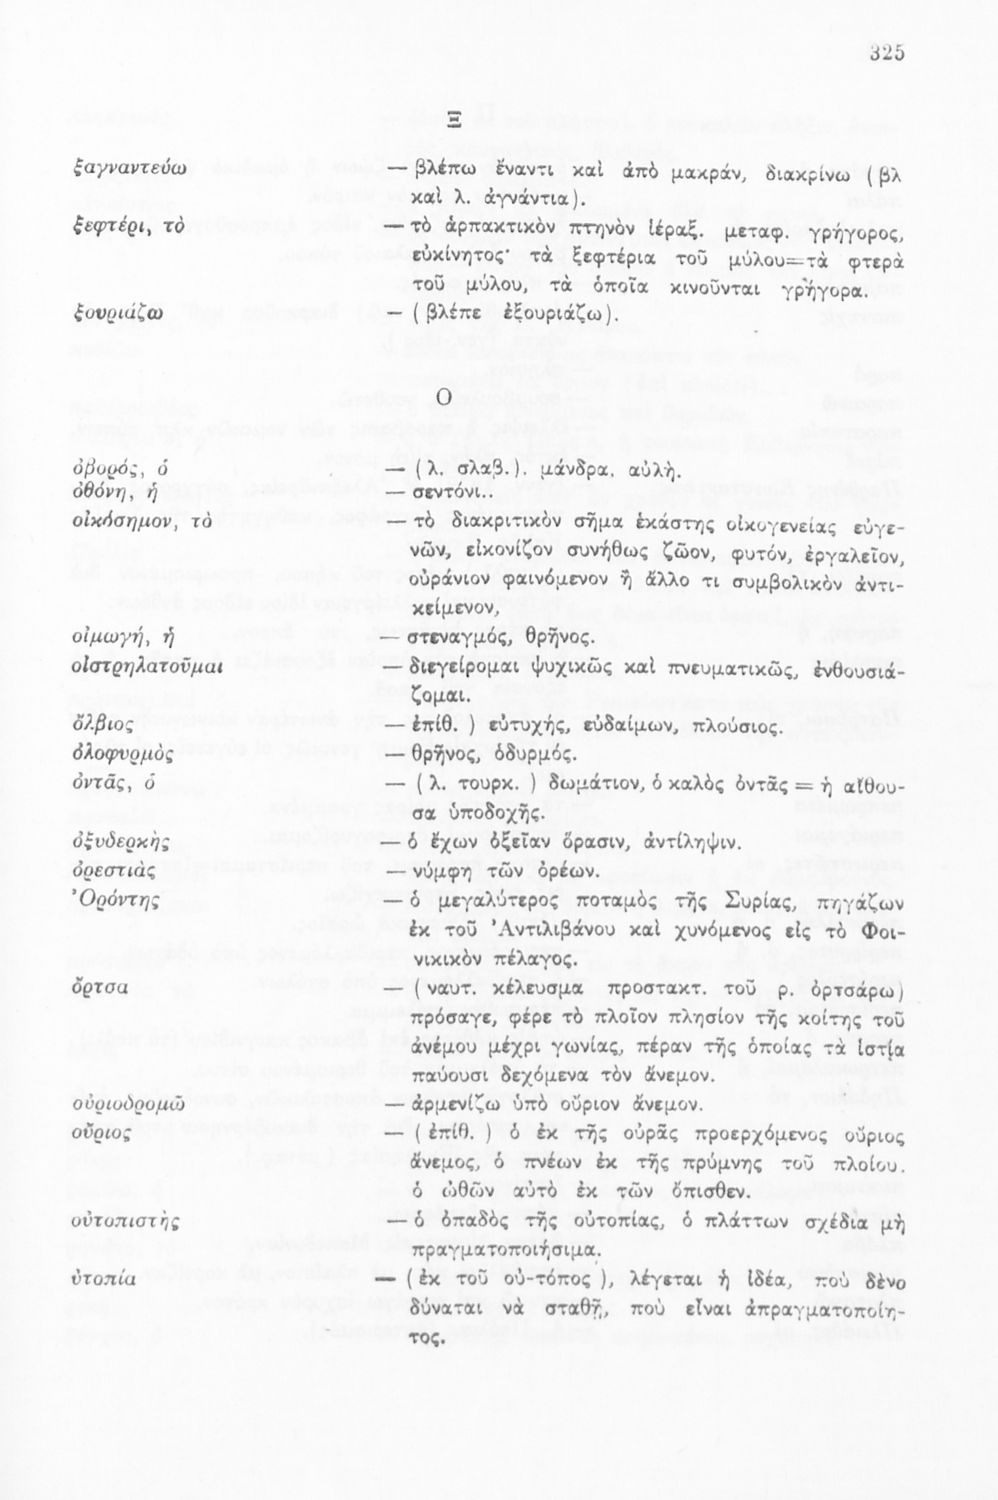 325
Ξ
ξαγναντεύω — βλέπω ἔναντι καὶ ἀπὸ μακράν, διακρίνω (βλ
καὶ λ. ἀγνάντια).
ξεφτέρι, τὸ — τὸ ἁρπακτικὸν πτηνὸν ἱέραξ. μεταφ. γρήγορος,
εὐκίνητος· τὰ ξεφτέρια τοῦ μύλου=τὰ φτερὰ
τοῦ μύλου, τὰ ὁποῖα κινοῦνται γρήγορα.
ξουριάζω — (βλέπε ἐξουριάζω).
Ο
ὀβορός, ὁ — (λ. σλαβ.). μάνδρα, αὐλή.
ὀθόνη, ἡ — σεντόνι..
οἰκόσημον, τὸ — τὸ διακριτικὸν σῆμα ἑκάστης οἰκογενείας εὐγε-
νῶν, εἰκονίζον συνήθως ζῶον, φυτόν, ἐργαλεῖον,
οὐράνιον φαινόμενον ἢ ἄλλο τι συμβολικὸν ἀντι-
κείμενον,
οἰμωγή, ἡ — στεναγμός, θρῆνος.
οἰστρηλατοῦμαι — διεγείρομαι ψυχικῶς καὶ πνευματικῶς, ἐνθουσιά-
ζομαι.
ὄλβιος — ἐπίθ. ) εὐτυχής, εὐδαίμων, πλούσιος.
ὀλοφυρμὸς — θρῆνος, ὀδυρμός.
ὀντᾶς, ὁ — ( λ. τουρκ. ) δωμάτιον, ὁ καλὸς ὀντᾶς = ἡ αἴθου-
σα ὑποδοχῆς.
ὀξυδερκὴς — ὁ ἔχων ὀξεῖαν ὅρασιν, ἀντίληψιν.
ὀρεστιὰς — νύμφη τῶν ὀρέων.
Ὀρόντης — ὁ μεγαλύτερος ποταμὸς τῆς Συρίας, πηγάζων
ἐκ τοῦ Ἀντιλιβάνου καὶ χυνόμενος εἰς τὸ Φοι-
νικικὸν πέλαγος.
ὄρτσα — (ναυτ. κέλευσμα προστακτ. τοῦ ρ. ὀρτσάρω)
πρόσαγε, φέρε τὸ πλοῖον πλησίον τῆς κοίτης τοῦ
ἀνέμου μέχρι γωνίας, πέραν τῆς ὁποίας τὰ ἱστία
παύουσι δεχόμενα τὸν ἄνεμον.
οὐριοδρομῶ — ἀρμενίζω ὑπὸ οὔριον ἄνεμον.
οὔριος — ( ἐπίθ. ) ὁ ἐκ τῆς οὐρᾶς προερχόμενος οὔριος
ἄνεμος, ὁ πνέων ἐκ τῆς πρύμνης τοῦ πλοίου.
ὁ ὠθῶν αὐτὸ ἐκ τῶν ὄπισθεν.
οὐτοπιστὴς — ὁ ὀπαδὸς τῆς οὐτοπίας, ὁ πλάττων σχέδια μὴ
πραγματοποιήσιμα.
ὐτοπία — (ἐκ τοῦ οὐ-τόπος ), λέγεται ἡ ἰδέα, ποὺ δὲνο
δύναται νὰ σταθῇ, ποὺ εἶναι ἀπραγματοποίη-
τος.